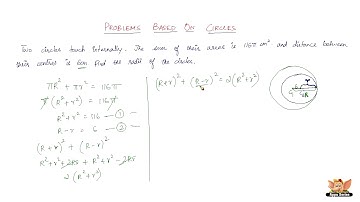 PROBLEMS BASED ON CIRCLES
Two circles touch internally. The sum of their areas is 116π cm² and distance between
their centres is 6cm. Find the radii of the circles.
πR² + πr² = 116π
π(R² + r²) = 116π
R² + r² = 116 — ①
R - r = 6 — ②
(R + r)² + (R - r)²
R² + r² + 2Rr + R² + r² - 2Rr
2(R² + r²)
(R+r)² + (R-r)² = 2(R² + r²)
6
R